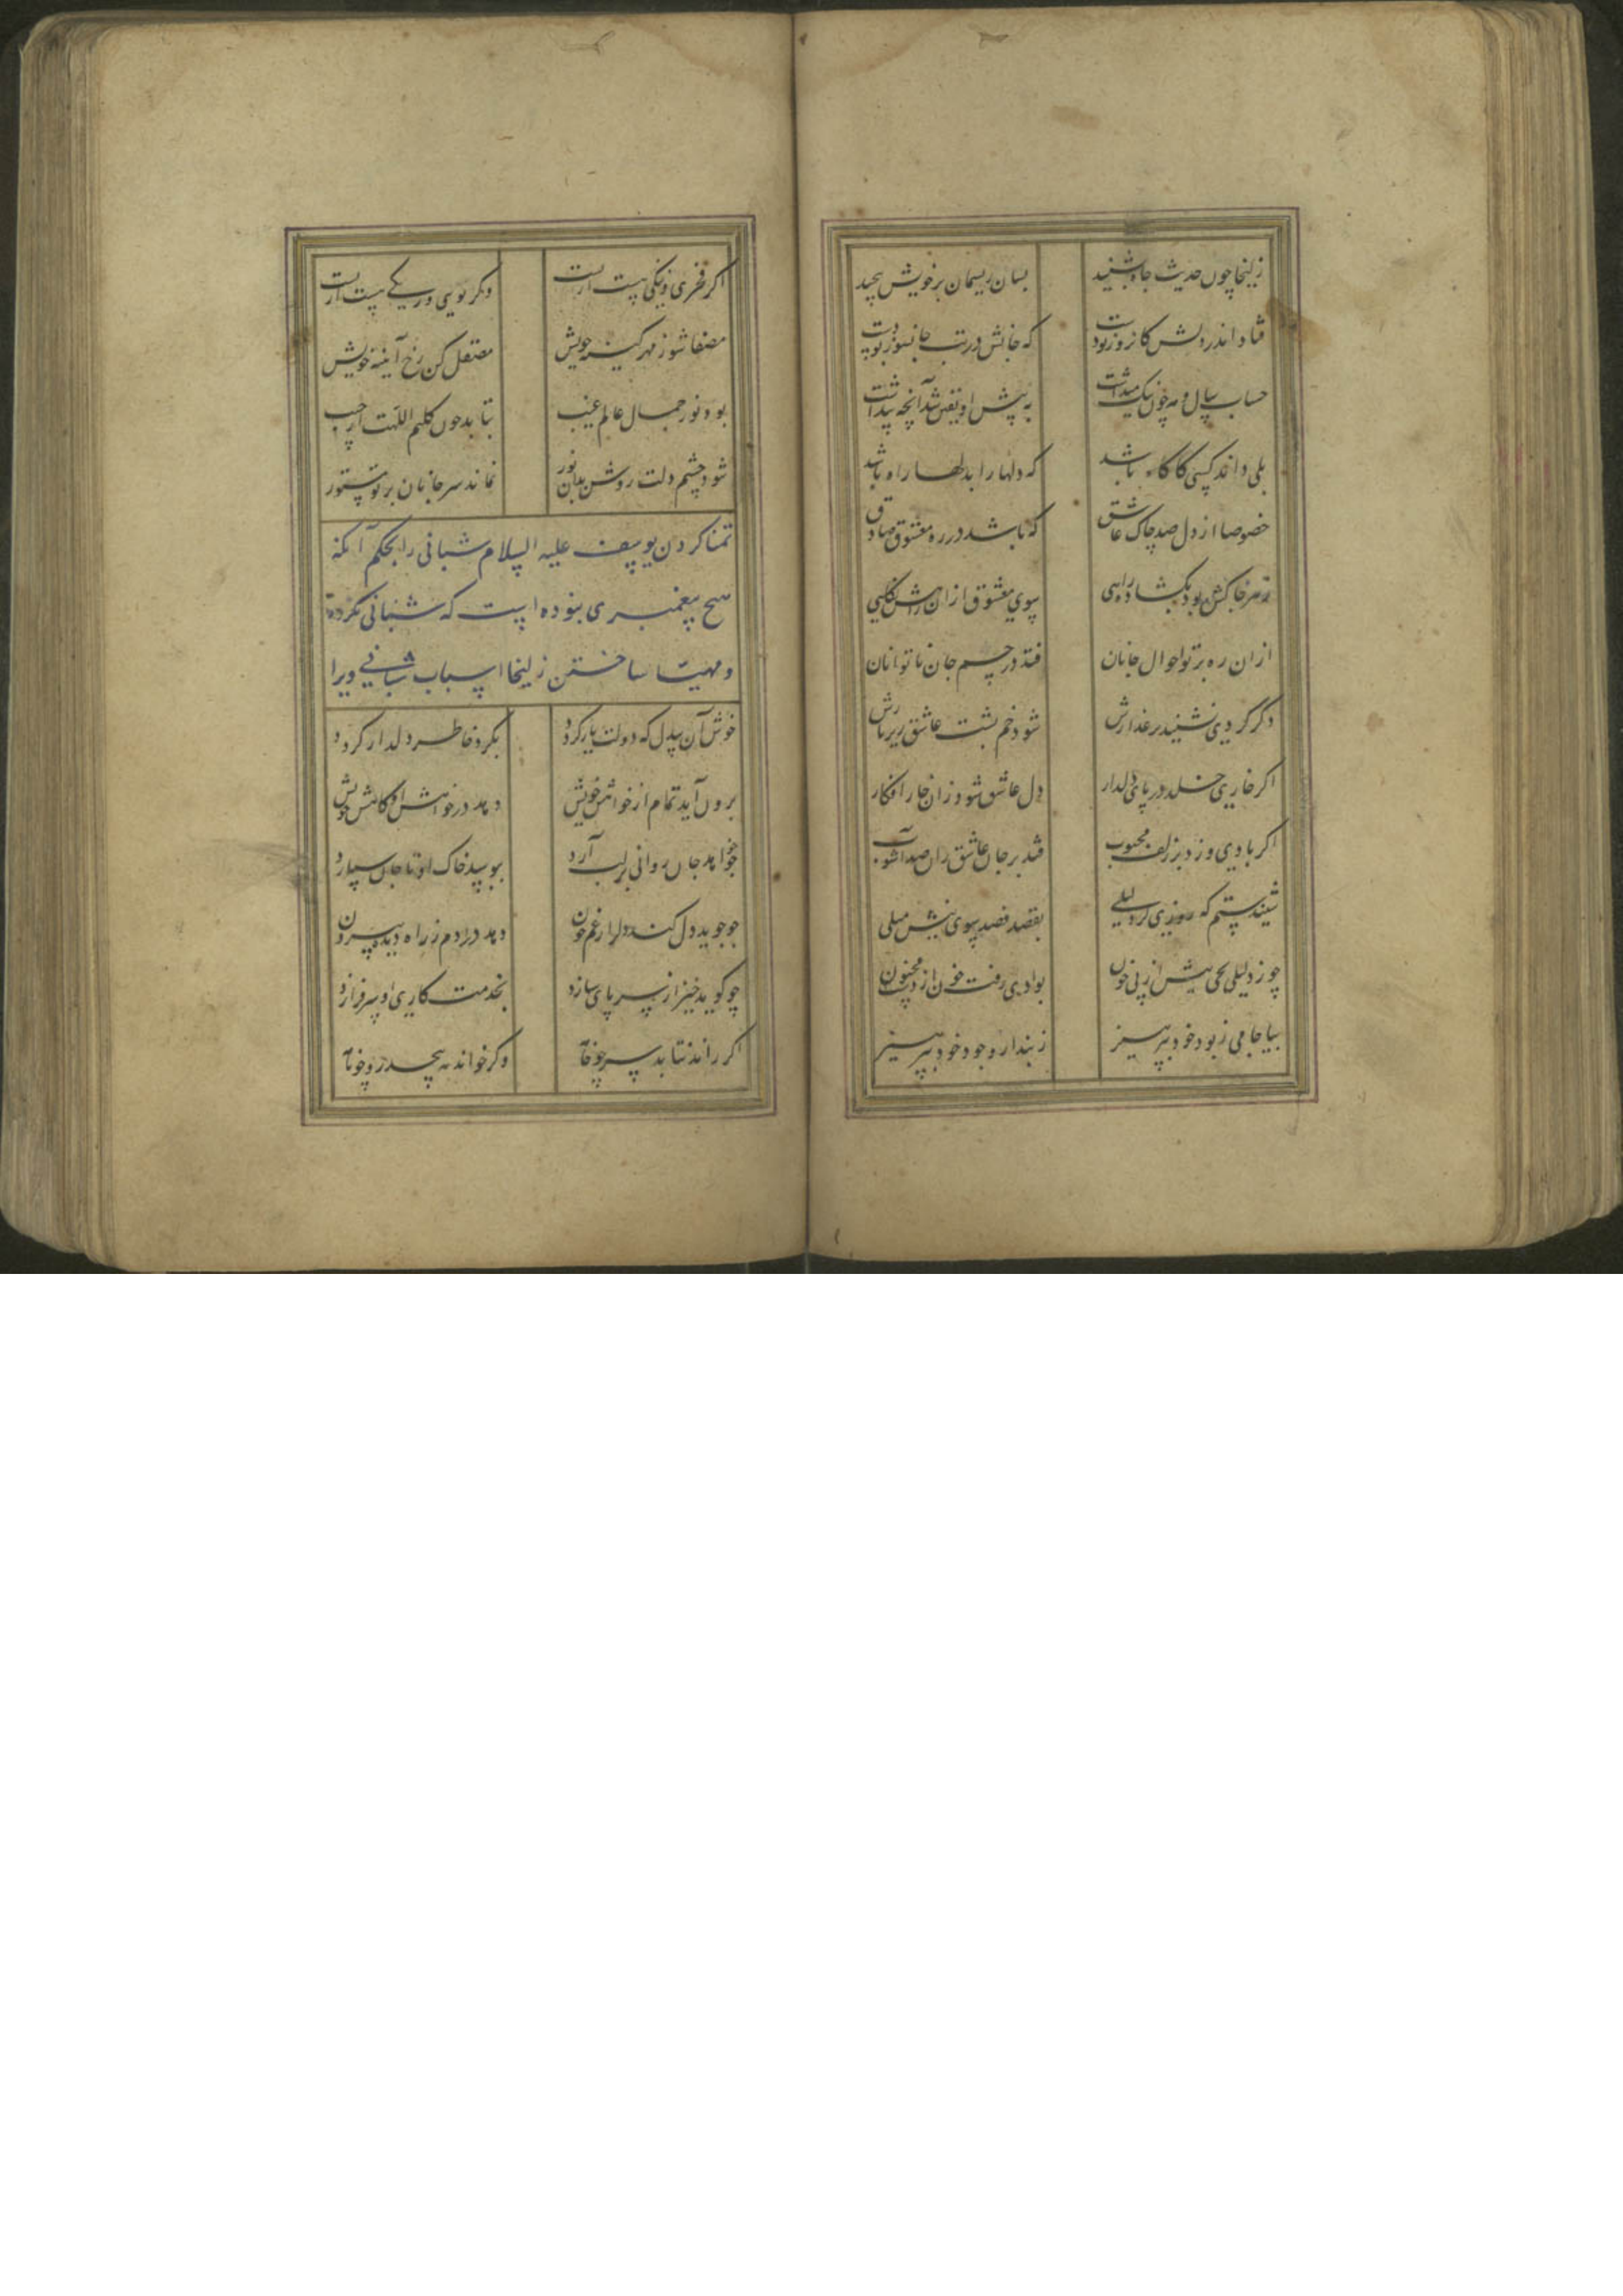 زلیخا چون حدیث چاه بشنید بسان ریسمان بر خویش پیچید
فتاد اندر دلش کان روز بودست که جانش در تب جانسوز بودست
حساب سال و مه چون نیک میداشت به پیش او یقین شد آنچه پنداشت
بلی داند کسی کاگاه باشد که دلها را بدلها راه باشد
خصوصا از دل صد چاک عاشق که باشد در ره معشوق صادق
ز هر چاکش بود بکشاده راهی بسوی معشوق ازان راهش نکاهی
ازان ره برتو احوال جانان فتد در چسم جان ناتوانان
دگر گردی نشیند بر عذارش شود خم پشت عاشق زیر بارش
اگر خاری خلد در پای دلدار دل عاشق شود زان خار افکار
اگر بادی وزد بر زلف محبوب فتد بر جان عاشق زان صد آشوب
شنیدستم که روزی کرد لیلی بقصد فصد سوی نیش میلی
چو زد لیلی بحی نیش از پی خون بوادی رفت خون از دست مجنون
بیا جامی ز بود خود بپرهیز ز پندار وجود خود بپرهیز
اگر فخری و نیکی نیست ازتست وگر نوی و رنگی نیست ازتست
مصفا شو ز مهر و کینه خویش مصقل کن رخ آیینه خویش
بود نور جمال عالم غیب بتابد چون کلیم اللهت از جیب
شود چشم دلت روشن بدان نور نماند سر جانان بر تو مستور
تمنا کردن یوسف علیه السلام شبانی را بحکم آنکه
هیچ پیغمبری نبوده است که شبانی نکرده
و مهیا ساختن زلیخا اسباب شبانی ویرا
خوش آن بیدل که دولت یار گردد بکرد خاطر دلدار گردد
برون آید تمام از خواهش خویش دهد در خواهش او کاهش خویش
چو خواهد جان روانی بر لب آرد ببوسد خاک او تا جان سپارد
چو جوید دل کند دلرا ز غم خون دهد در دم ز راه دیده بیرون
چو گوید خیز از سر پای سازد بخدمت کاری او سر فرازد
اگر راند نتابد سر چو خامه وگر خواند نپیچد رو چو نامه